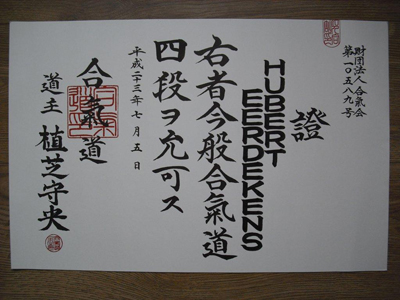 財団法人 合氣会
第一〇五八九号
證
HUBERT
EERDEKENS
右者今般合氣道
四段ヲ允可ス
平成二十三年七月五日
合氣道
道主 植芝守央